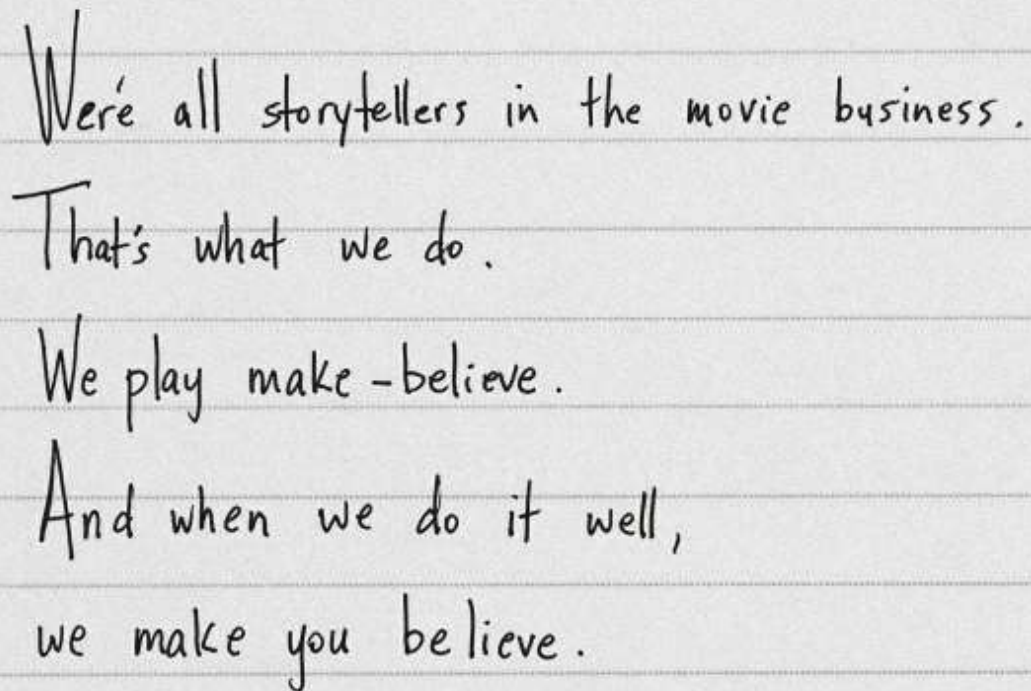 We're all storytellers in the movie business.
That's what we do.
We play make-believe.
And when we do it well,
we make you believe.